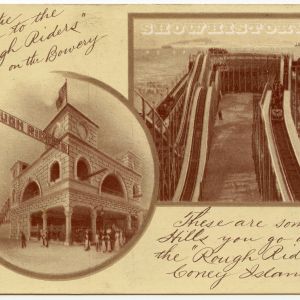 to the
"Rough Riders"
on the Bowery
SHOWHISTORY
ROUGH RIDERS
These are som
Hills you go o
the "Rough Rid
Coney Islan